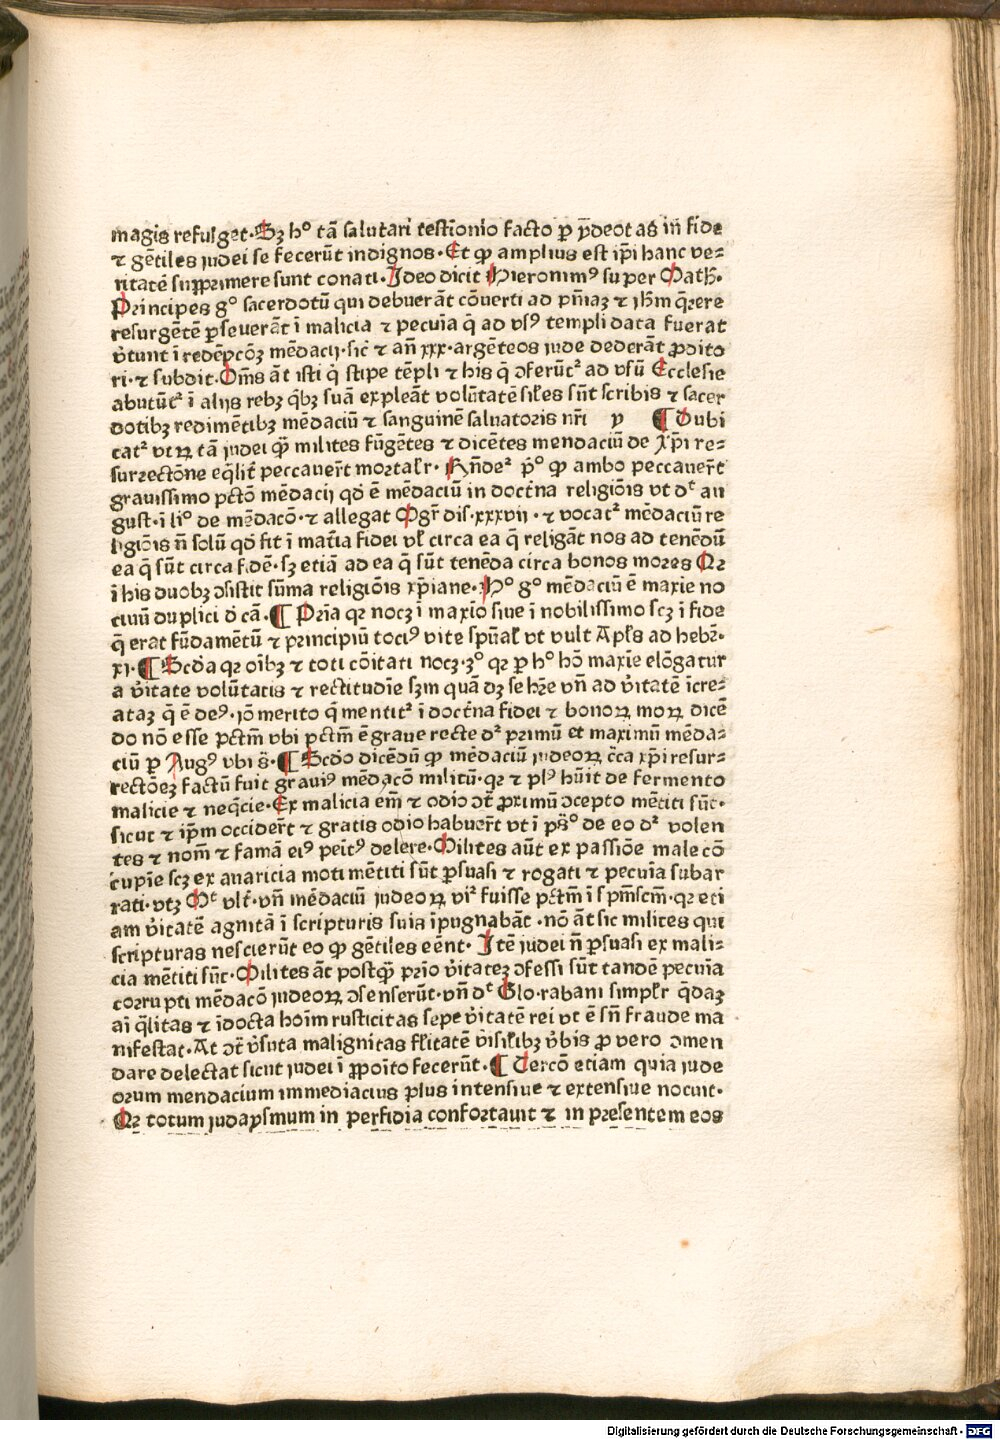 magis refulget·Sꝫ hº tā salutari testīonio facto ꝑ ydeot as in fide
⁊ gētiles iudei se fecerūt indignos·Et ꝙ amplius est ip̄i hanc ve⸗
ritatē supprimere sunt conati·Ideo dicit Hieronimꝰ super Math·
Principes gº sacerdotū qui debuerāt cōuerti ad pn̄iaꝫ ⁊ ihm̄ q̄rere
resurgētē ꝑseuerāt ī malicia ⁊ pecuīa q̄ ad vsꝰ templi data fuerat
v̄tunt ī redēpcōꝫ mēdacij·sic̄ ⁊ an̄ xxx·argēteos iude dederāt ꝓdito
ri·⁊ subdit·Om̄s āt isti q̄ stipe tēpli ⁊ his q̄ ꝯferūt᷑ ad vsū Ecclesie
abutūt᷑ ī alijs rebꝫ q̄bꝫ suā expleāt volūtatē sil̄es sūt scribis ⁊ sacer
dotibꝫ redimētibꝫ mēdaciū ⁊ sanguinē saluatoris nr̄i y ¶ Dubi
cat᷑ vtꝝ tā iudei qꝫ milites fūgētes ⁊ dicētes mendaciū de xp̄i re⸗
surrectōne eq̄lit̄ peccauer̄t mortalr̄· Rn̄de᷑ pº ꝙ ambo peccauer̄t
grauissimo pctō mēdacij qd̄ ē mēdaciū in doctn̄a religiōis vt dt̄ au
gust·ī liº de mēdacō·⁊ allegat Mgr̄ dis·xxxvij·⁊ vocat᷑ mēdaciū re
ligiōis n̄ solū qd̄ fit ī mat̄ia fidei vl̄ circa ea q̄ religāt nos ad tenēdū
ea q̄ sūt circa fidē·sꝫ etiā ad ea q̄ sūt tenēda circa bonos mores Qꝛ
ī his duobꝫ ꝯsistit sūma religiōis xp̄iane·Hº gº mēdaciū ē maxīe no
ciuū duplici d̄ cā·¶ Prīa qꝛ nocꝫ ī maxīo siue ī nobilissimo scꝫ ī fide
q̄ erat fūdamētū ⁊ principiū tociꝰ vite sp̄ual̄ vt vult Apl̄s ad hebr̄·
xj·¶ Scd̄a qꝛ oībꝫ ⁊ toti cōitati nocꝫ·3º qꝛ ꝑ hº hō maxīe elōgatur
a v̄itate volūtatis ⁊ rectitudīe sꝫm quā dꝫ se hr̄e vn̄ ad v̄itatē īcre⸗
ataꝫ q̄ ē deꝰ·iō merito q̄ mentit᷑ ī doctn̄a fidei ⁊ bonoꝝ moꝝ dicē
do nō esse pctm̄ vbi pctm̄ ē graue recte d᷑ primū et maximū mēda⸗
ciū ꝑ Augꝰ vbi s̄·¶ Scd̄o dicēdū ꝙ mēdaciū iudeoꝝ c̄ca xp̄i resur⸗
rectōeꝫ factū fuit grauiꝰ mēdacō militū·qꝛ ⁊ plꝰ hūit de fermento
malicie ⁊ neq̄cie·Ex malicia em̄ ⁊ odio ꝯt̄ ꝓximū ꝯcepto mētiti sūt·
sicut ⁊ ip̄m occider̄t ⁊ gratis odio habuer̄t vt ī psº de eo d᷑ volen
tes ⁊ nom̄ ⁊ famā eiꝰ penit̄ꝰ delere·Milites aūt ex passiōe male cō
cupīe scꝫ ex auaricia moti mētiti sūt ꝑsuasi ⁊ rogati ⁊ pecuīa subar
rati·vtꝫ Mt̄ vlt̄·vn̄ mēdaciū iudeoꝝ vi᷑ fuisse pctm̄ ī spm̄scm̄·qꝛ eti
am v̄itatē agnitā ī scripturis suis īpugnabāt·nō āt sic milites qui
scripturas nescierūt eo ꝙ gētiles eēnt· Itē iudei n̄ ꝑsuasi ex mali⸗
cia mētiti sūt·Milites āt postqꝫ prīo v̄itateꝫ ꝯfessi sūt tandē pecuīa
corrupti mēdacō iudeoꝝ ꝯsenserūt·vn̄ dt̄ Glo·rabani simplr̄ q̄daꝫ
aī q̄litas ⁊ īdocta hoīm rusticitas sepe v̄itatē rei vt ē sn̄ fraude ma
nifestat·At ꝯt̄ v̄suta malignitas fl̄itatē v̄isil̄ibꝫ v̄bis ꝓ vero ꝯmen
dare delectat sicut iudei ī ꝓpoīto fecerūt·¶ Tercō etiam quia iude
orum mendacium immediacius plus intensiue ⁊ extensiue nocuit·
Qꝛ totum iudaysmum in perfidia confortauit ⁊ in presentem eos
Digitalisierung gefördert durch die Deutsche Forschungsgemeinschaft - DFG